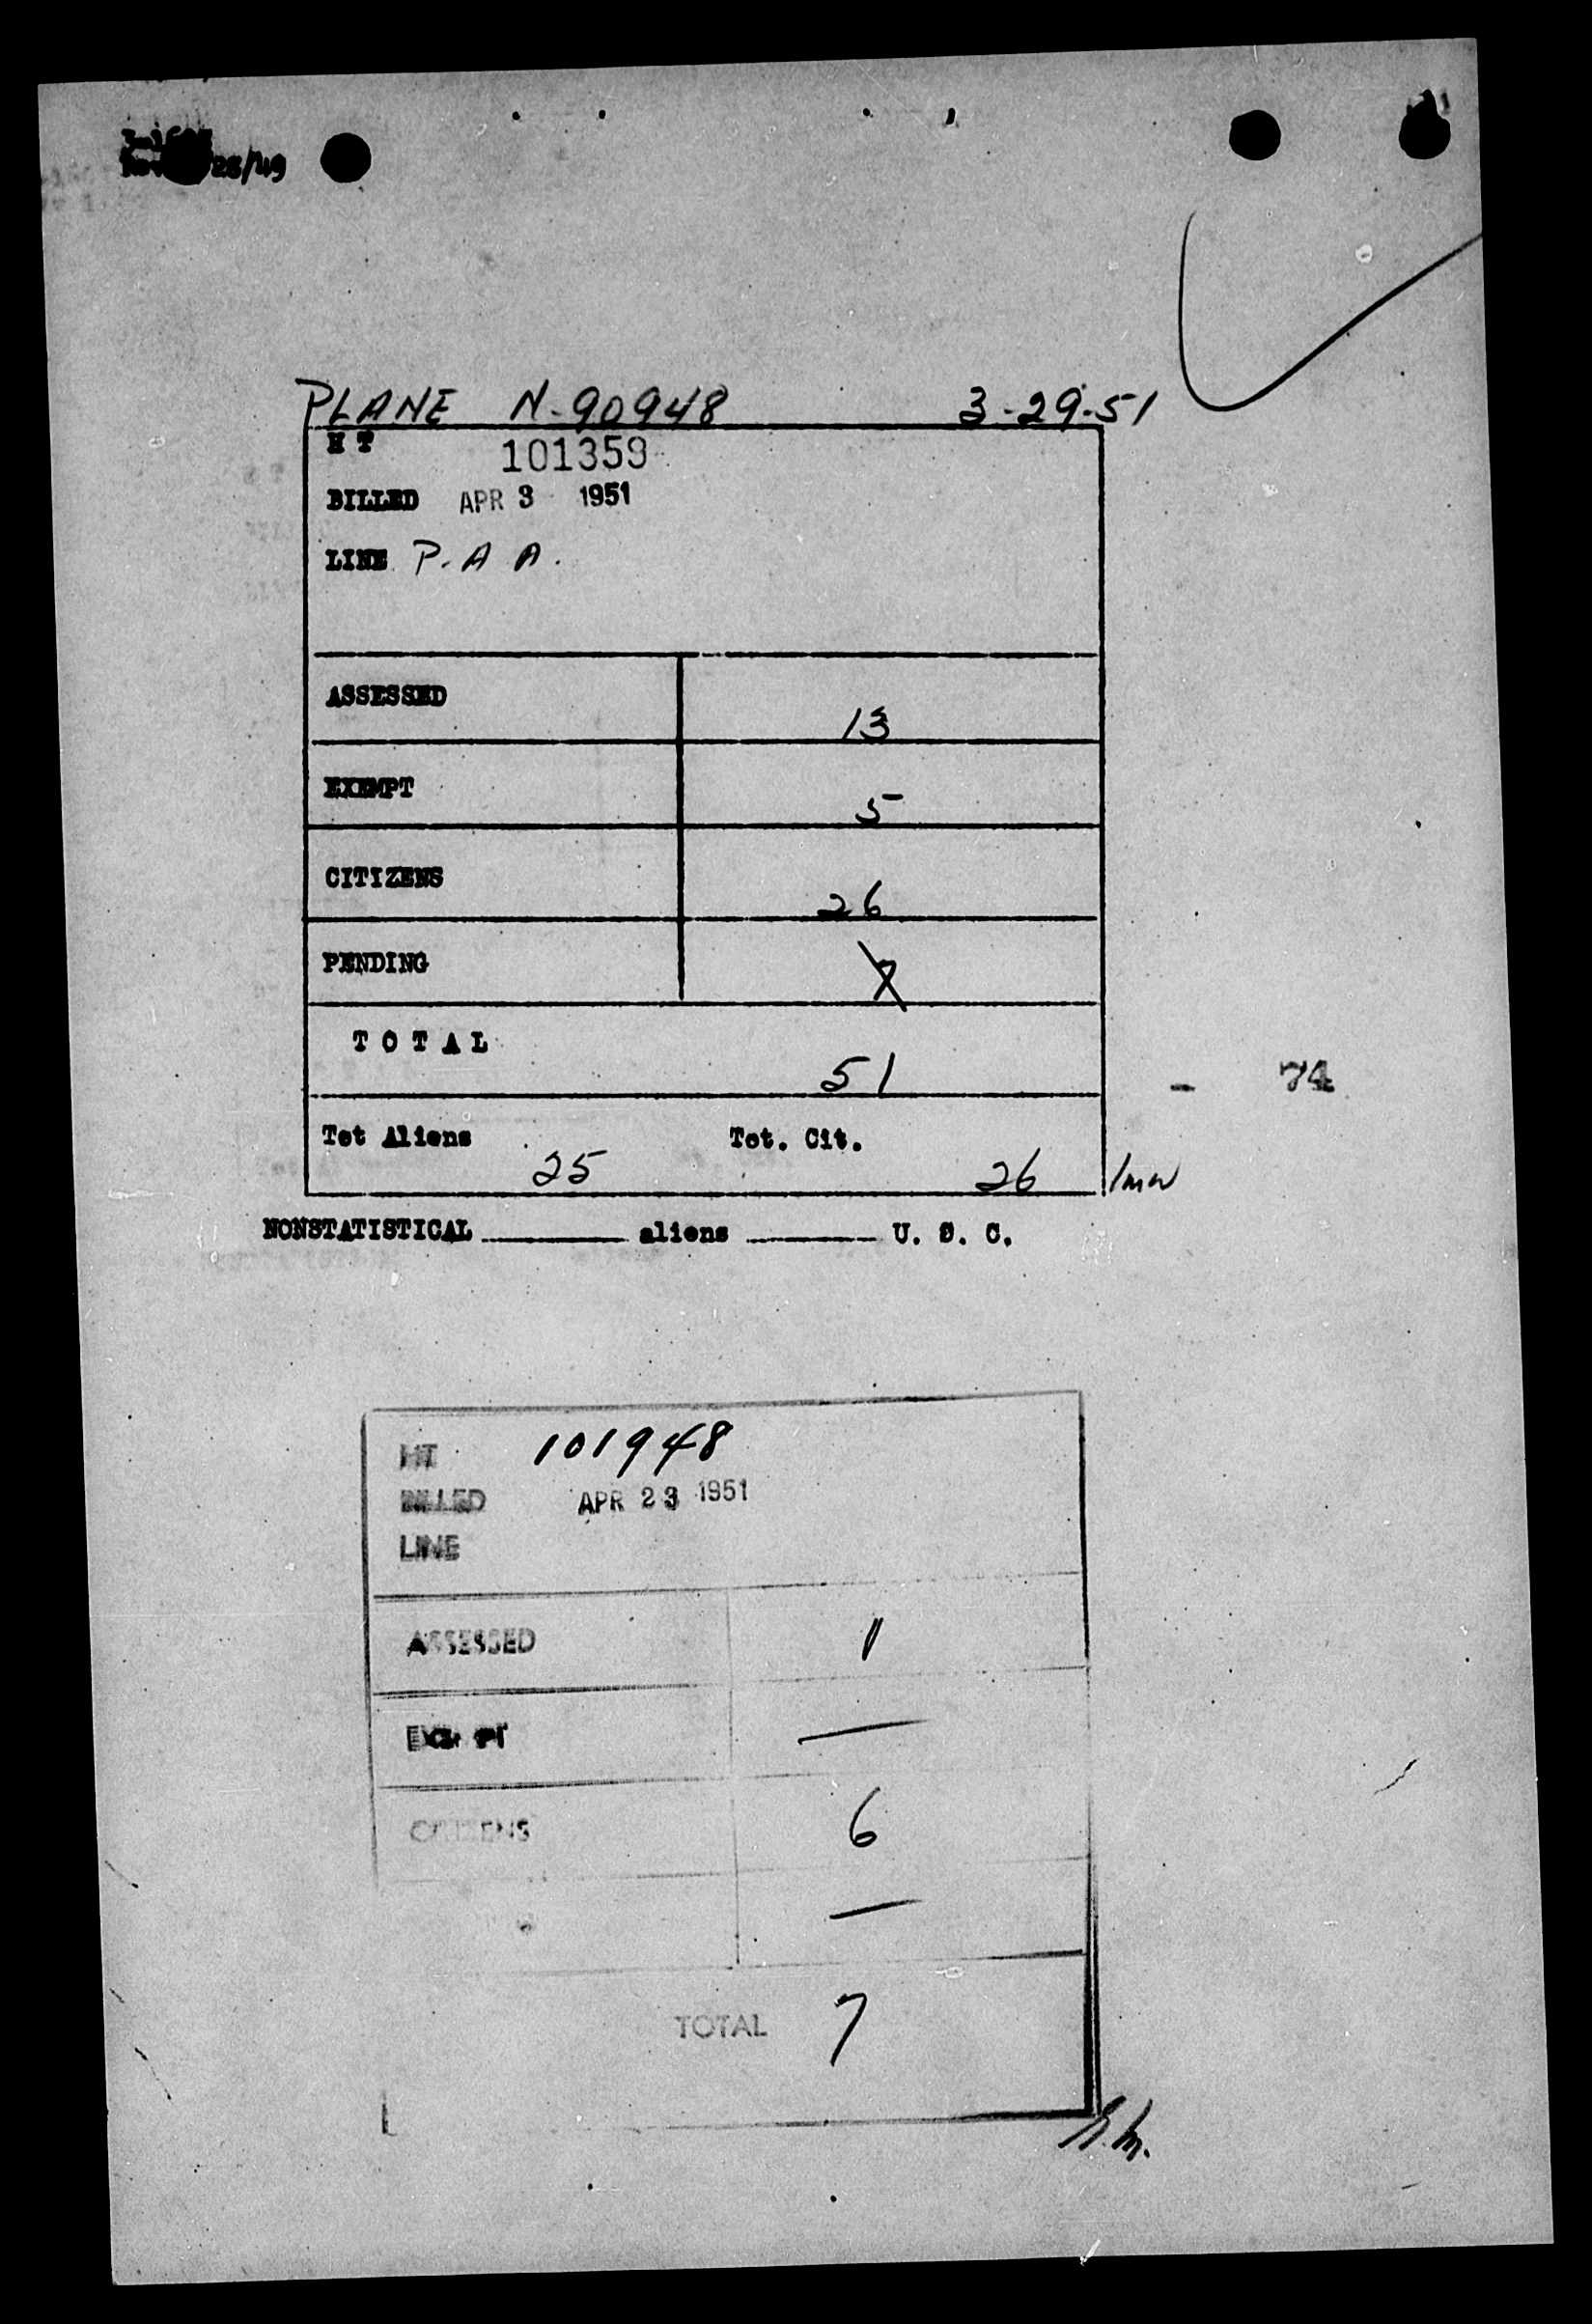 28/49
PLANE N-90948 3-29-51
H T 101359
BILLED APR 3 1951
LINE P. A A.
ASSESSED 13
EXEMPT 5
CITIZENS 26
PENDING 7
T O T A L 51
- 74
Tot Aliens 25 Tot. Cit. 26 /mw
NONSTATISTICAL ______ aliens ______ U. S. C.
HT 101948
BILLED APR 23 1951
LINE
ASSESSED 1
EXEMPT —
CITIZENS 6
—
TOTAL 7